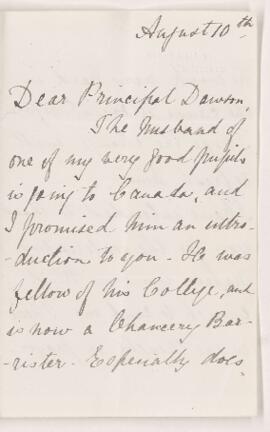 August 10th
Dear Principal Dawson,
The husband of
one of my very good pupils
is going to Canada, and
I promised him an intro-
-duction to you - He was
fellow of his College, and
is now a Chancery Bar-
-rister. Especially does